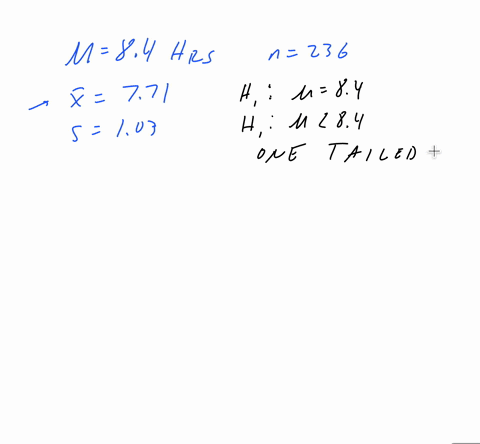 μ = 8.4 HRS
n = 236
→ x̄ = 7.71
s = 1.03
H₁: μ = 8.4
H₁: μ < 8.4
ONE TAILED